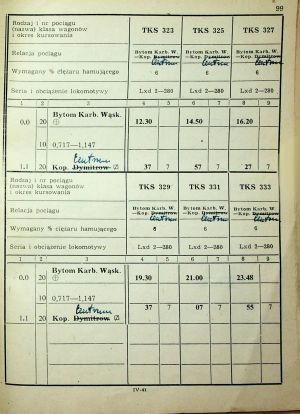 99
Rodzaj i nr pociągu
(nazwa) klasa wagonów
i okres kursowania
TKS 323 TKS 325 TKS 327
Relacja pociągu
Bytom Karb. W. Bytom Karb. W. Bytom Karb. W.
—Kop. Dymitrow —Kop. Dymitrow —Kop. Dymitrow
Centrum Centrum Centrum
Wymagany % ciężaru hamującego 6 6 6
Seria i obciążenie lokomotywy Lxd 2—280 Lxd 2—280 Lxd 2—280
1 2 3 4 5 6 7 8 9
0.0 20 Bytom Karb. Wąsk. 12.30 14.50 16.20
10 0,717—1,147
Centrum
1.1 20 Kop. Dymitrow 37 7 57 7 27 7
Rodzaj i nr pociągu
(nazwa) klasa wagonów
i okres kursowania
TKS 329 TKS 331 TKS 333
Relacja pociągu
Bytom Karb. W. Bytom Karb. W. Bytom Karb. W.
—Kop. Dymitrow —Kop. Dymitrow —Kop. Dymitrow
Centrum Centrum Centrum
Wymagany % ciężaru hamującego 6 6 6
Seria i obciążenie lokomotywy Lxd 2—280 Lxd 2—280 Lxd 2—280
1 2 3 4 5 6 7 8 9
0.0 20 Bytom Karb. Wąsk. 19.30 21.00 23.48
10 0,717—1,147
Centrum
1.1 20 Kop. Dymitrow 37 7 07 7 55 7
IV-41